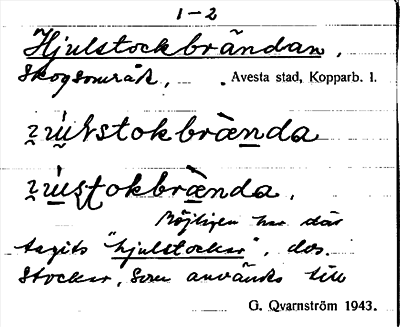 1-2
Hjulstockbrändan.
Skogsområde, . Avesta stad, Kopparb. l.
stokbrànda
tokbrànda.
Möjligen har där
tagits "hjulstockar", dvs.
stockar, som använts till
G. Qvarnström 1943.